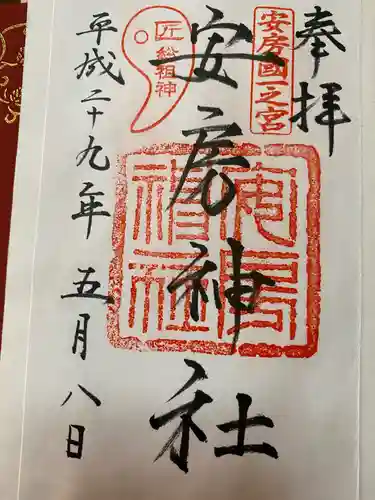 奉拝
安房國一之宮
安房神社
匠総祖神
平成二十九年五月八日